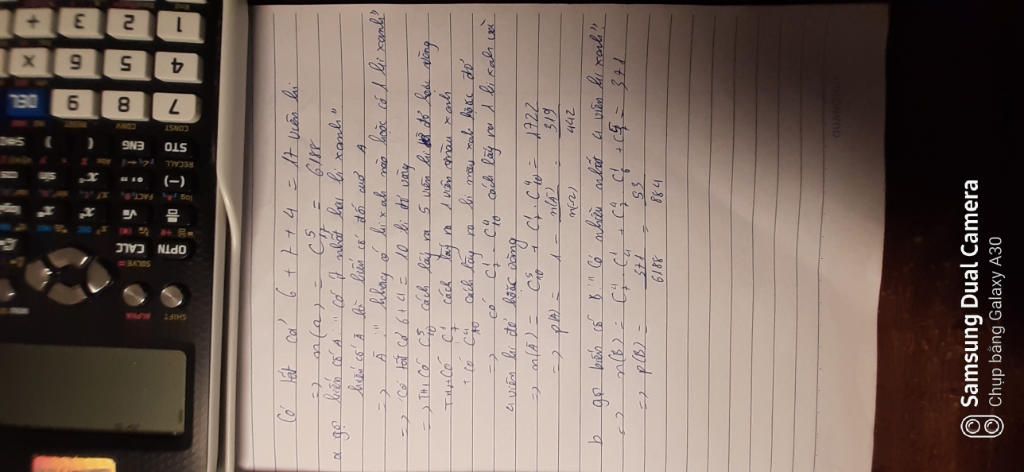 Có tất cả 6 + 7 + 4 = 17 viên bi
=> n(Ω) = C⁵₁₇ = 6188
a gọi biến cố A: " có ít nhất hai bi xanh"
biến cố Ā là biến cố đối của A
=> Ā: " không có bi xanh nào hoặc có 1 bi xanh"
=> Có tất cả 6 + 4 = 10 bi đỏ vàng
=> TH1 có C⁵₁₀ cách lấy ra 5 viên bi đỏ hoặc vàng
TH2+ Có C¹₇ cách lấy ra 1 viên màu xanh
+ có C⁴₁₀ cách lấy ra bi màu xanh hoặc đỏ
=> có C¹₇ . C⁴₁₀ cách lấy ra 1 bi xanh và
4 viên bi đỏ hoặc vàng
=> n(Ā) = C⁵₁₀ + C¹₇ . C⁴₁₀ = 1722
=> p(A) = 1 - n(Ā)/n(Ω) = 319/442
b gọi biến cố B: " Có nhất 4 viên bi xanh"
=> n(B) = C⁴₇ . C¹₄ + C⁴₇ . C¹₆ + C⁵₇ = 371
=> p(B) = 371/6188 = 53/884
OPTN CALC
SHIFT ALPHA
STO ENG ( )
7 8 9 DEL
4 5 6 ×
1 2 3 +
Samsung Dual Camera
Chụp bằng Galaxy A30